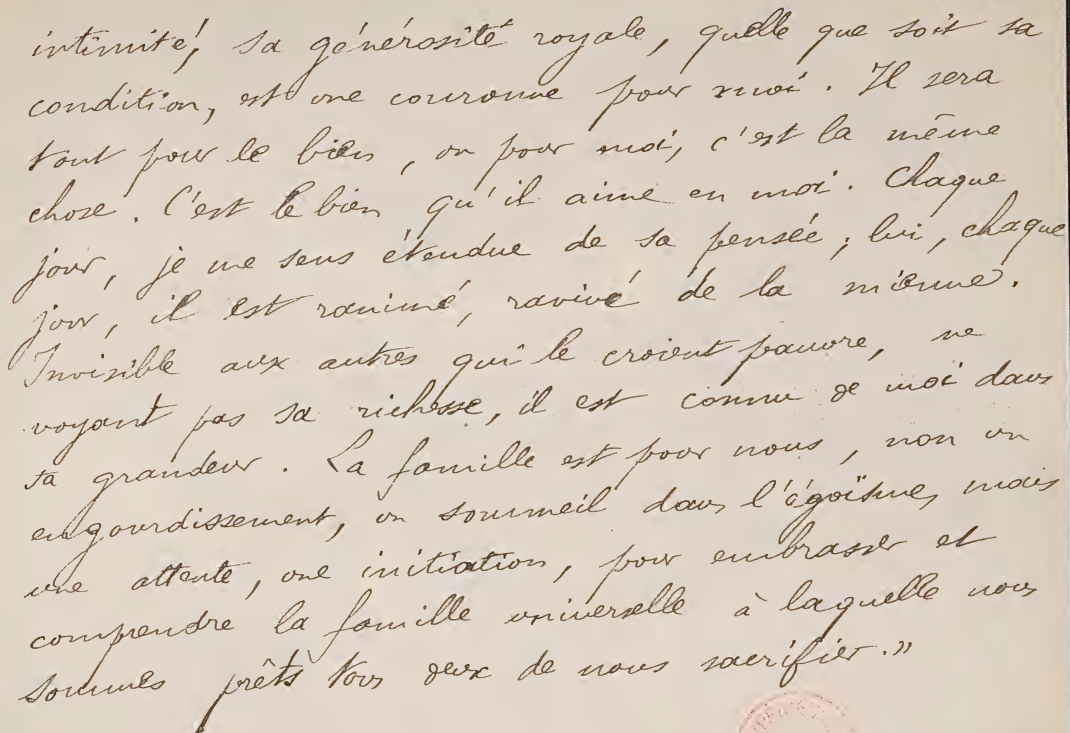 intimité, sa générosité royale, quelle que soit sa
condition, est une couronne pour moi. Il sera
tout pour le bien, ou pour moi, c'est la même
chose. C'est le bien qu'il aime en moi. Chaque
jour, je me sens étendue de sa pensée ; lui, chaque
jour, il est ranimé, ravivé de la mienne.
Invisible aux autres qui le croient pauvre, ne
voyant pas sa richesse, il est connu de moi dans
sa grandeur. La famille est pour nous, non un
engourdissement, un sommeil dans l'égoïsme, mais
une attente, une initiation, pour embrasser et
comprendre la famille universelle à laquelle nous
sommes prêts tous deux de nous sacrifier."